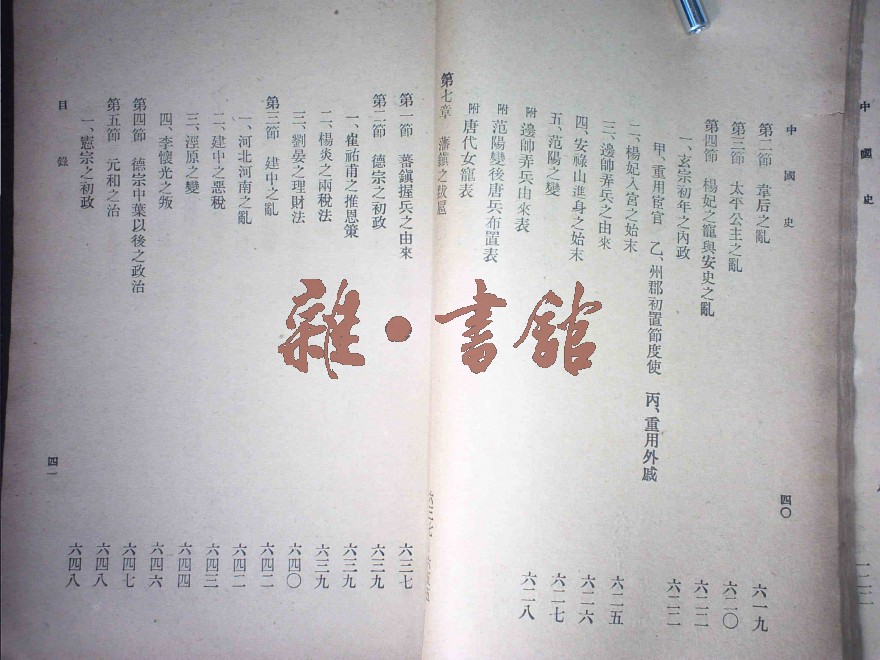 中國史
四〇
第二節 韋后之亂 六一九
第三節 太平公主之亂 六二〇
第四節 楊妃之寵與安史之亂 六二二
一、玄宗初年之內政 六二二
甲、重用宦官 乙、州郡初置節度使 丙、重用外戚
二、楊妃入宮之始末 六二五
三、邊帥弄兵之由來 六二六
四、安祿山進身之始末 六二七
五、范陽之變 六二八
附 邊帥弄兵由來表
附 范陽變後唐兵布置表
附 唐代女寵表
第七章 藩鎮之跋扈 六三七
第一節 蕃鎮握兵之由來 六三七
第二節 德宗之初政 六三九
一、崔祐甫之推恩策 六三九
二、楊炎之兩稅法 六三九
三、劉晏之理財法 六四〇
第三節 建中之亂 六四二
一、河北河南之亂 六四二
二、建中之惡稅 六四三
三、涇原之變 六四四
四、李懷光之叛 六四六
第四節 德宗中葉以後之政治 六四七
第五節 元和之治 六四八
一、憲宗之初政 六四八
目錄
四一
中國史
雜·書館